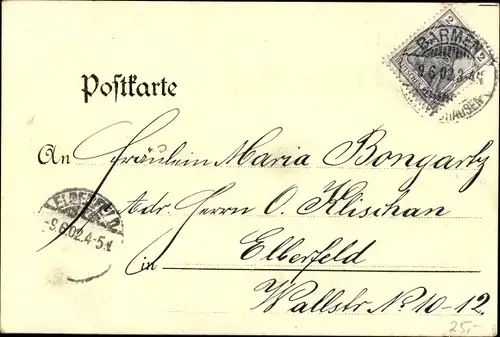 2 2
BARMEN
9.6.02.3-4N
HAUSEN
Postkarte
An Fräulein Maria Bongartz
Adr. Herrn O. Klischan
ELBERFELD
9.6.02.4-5N
in Elberfeld
Wallstr No 10-12.
25,-